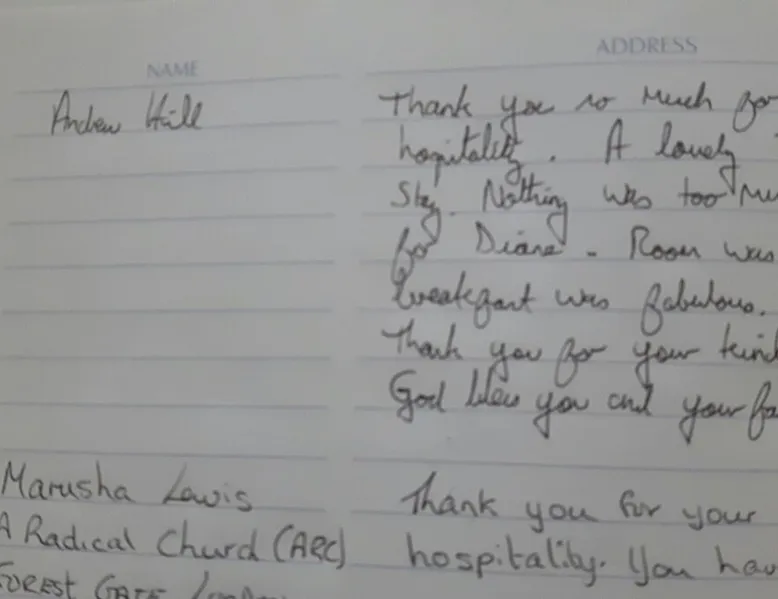 NAME
ADDRESS
Andrew Hill
Thank you so much for
hospitality. A lovely
Stay. Nothing was too mu
for Diane. Room was
breakfast was fabulous.
Thank you for your kind
God bless you and your fa
Marusha Lewis
Thank you for your
A Radical Church (ARC)
hospitality. You hav
FOREST GATE London